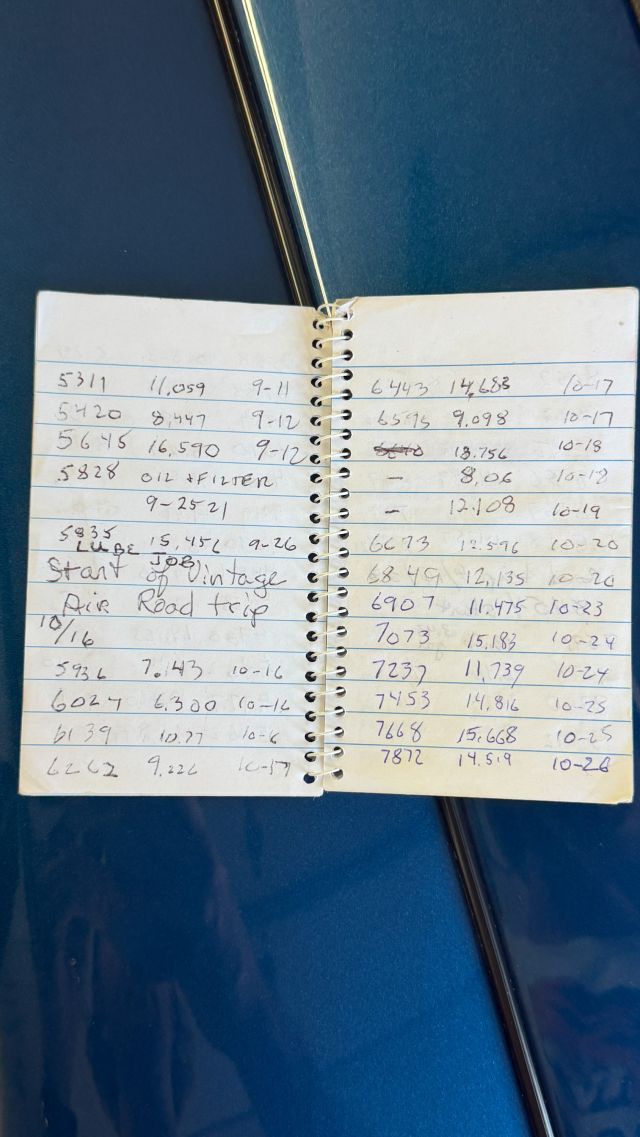 5311 11,059 9-11
5420 8,447 9-12
5645 16,590 9-12
5828 OIL + FILTER
9-25 21
5835 15,456 9-26
LUBE JOB
Start of Vintage
Air Road trip
10/16
5936 7,143 10-16
6027 6,300 10-16
6139 10.77 10-6
6262 9.226 10-17
6443 14,683 10-17
6595 9.098 10-17
13.756 10-18
- 8,06 10-18
- 12.108 10-19
6673 12.596 10-20
6849 12,135 10-20
6907 11.475 10-23
7073 15,183 10-24
7237 11,739 10-24
7453 14,816 10-25
7668 15,668 10-25
7872 14.519 10-26